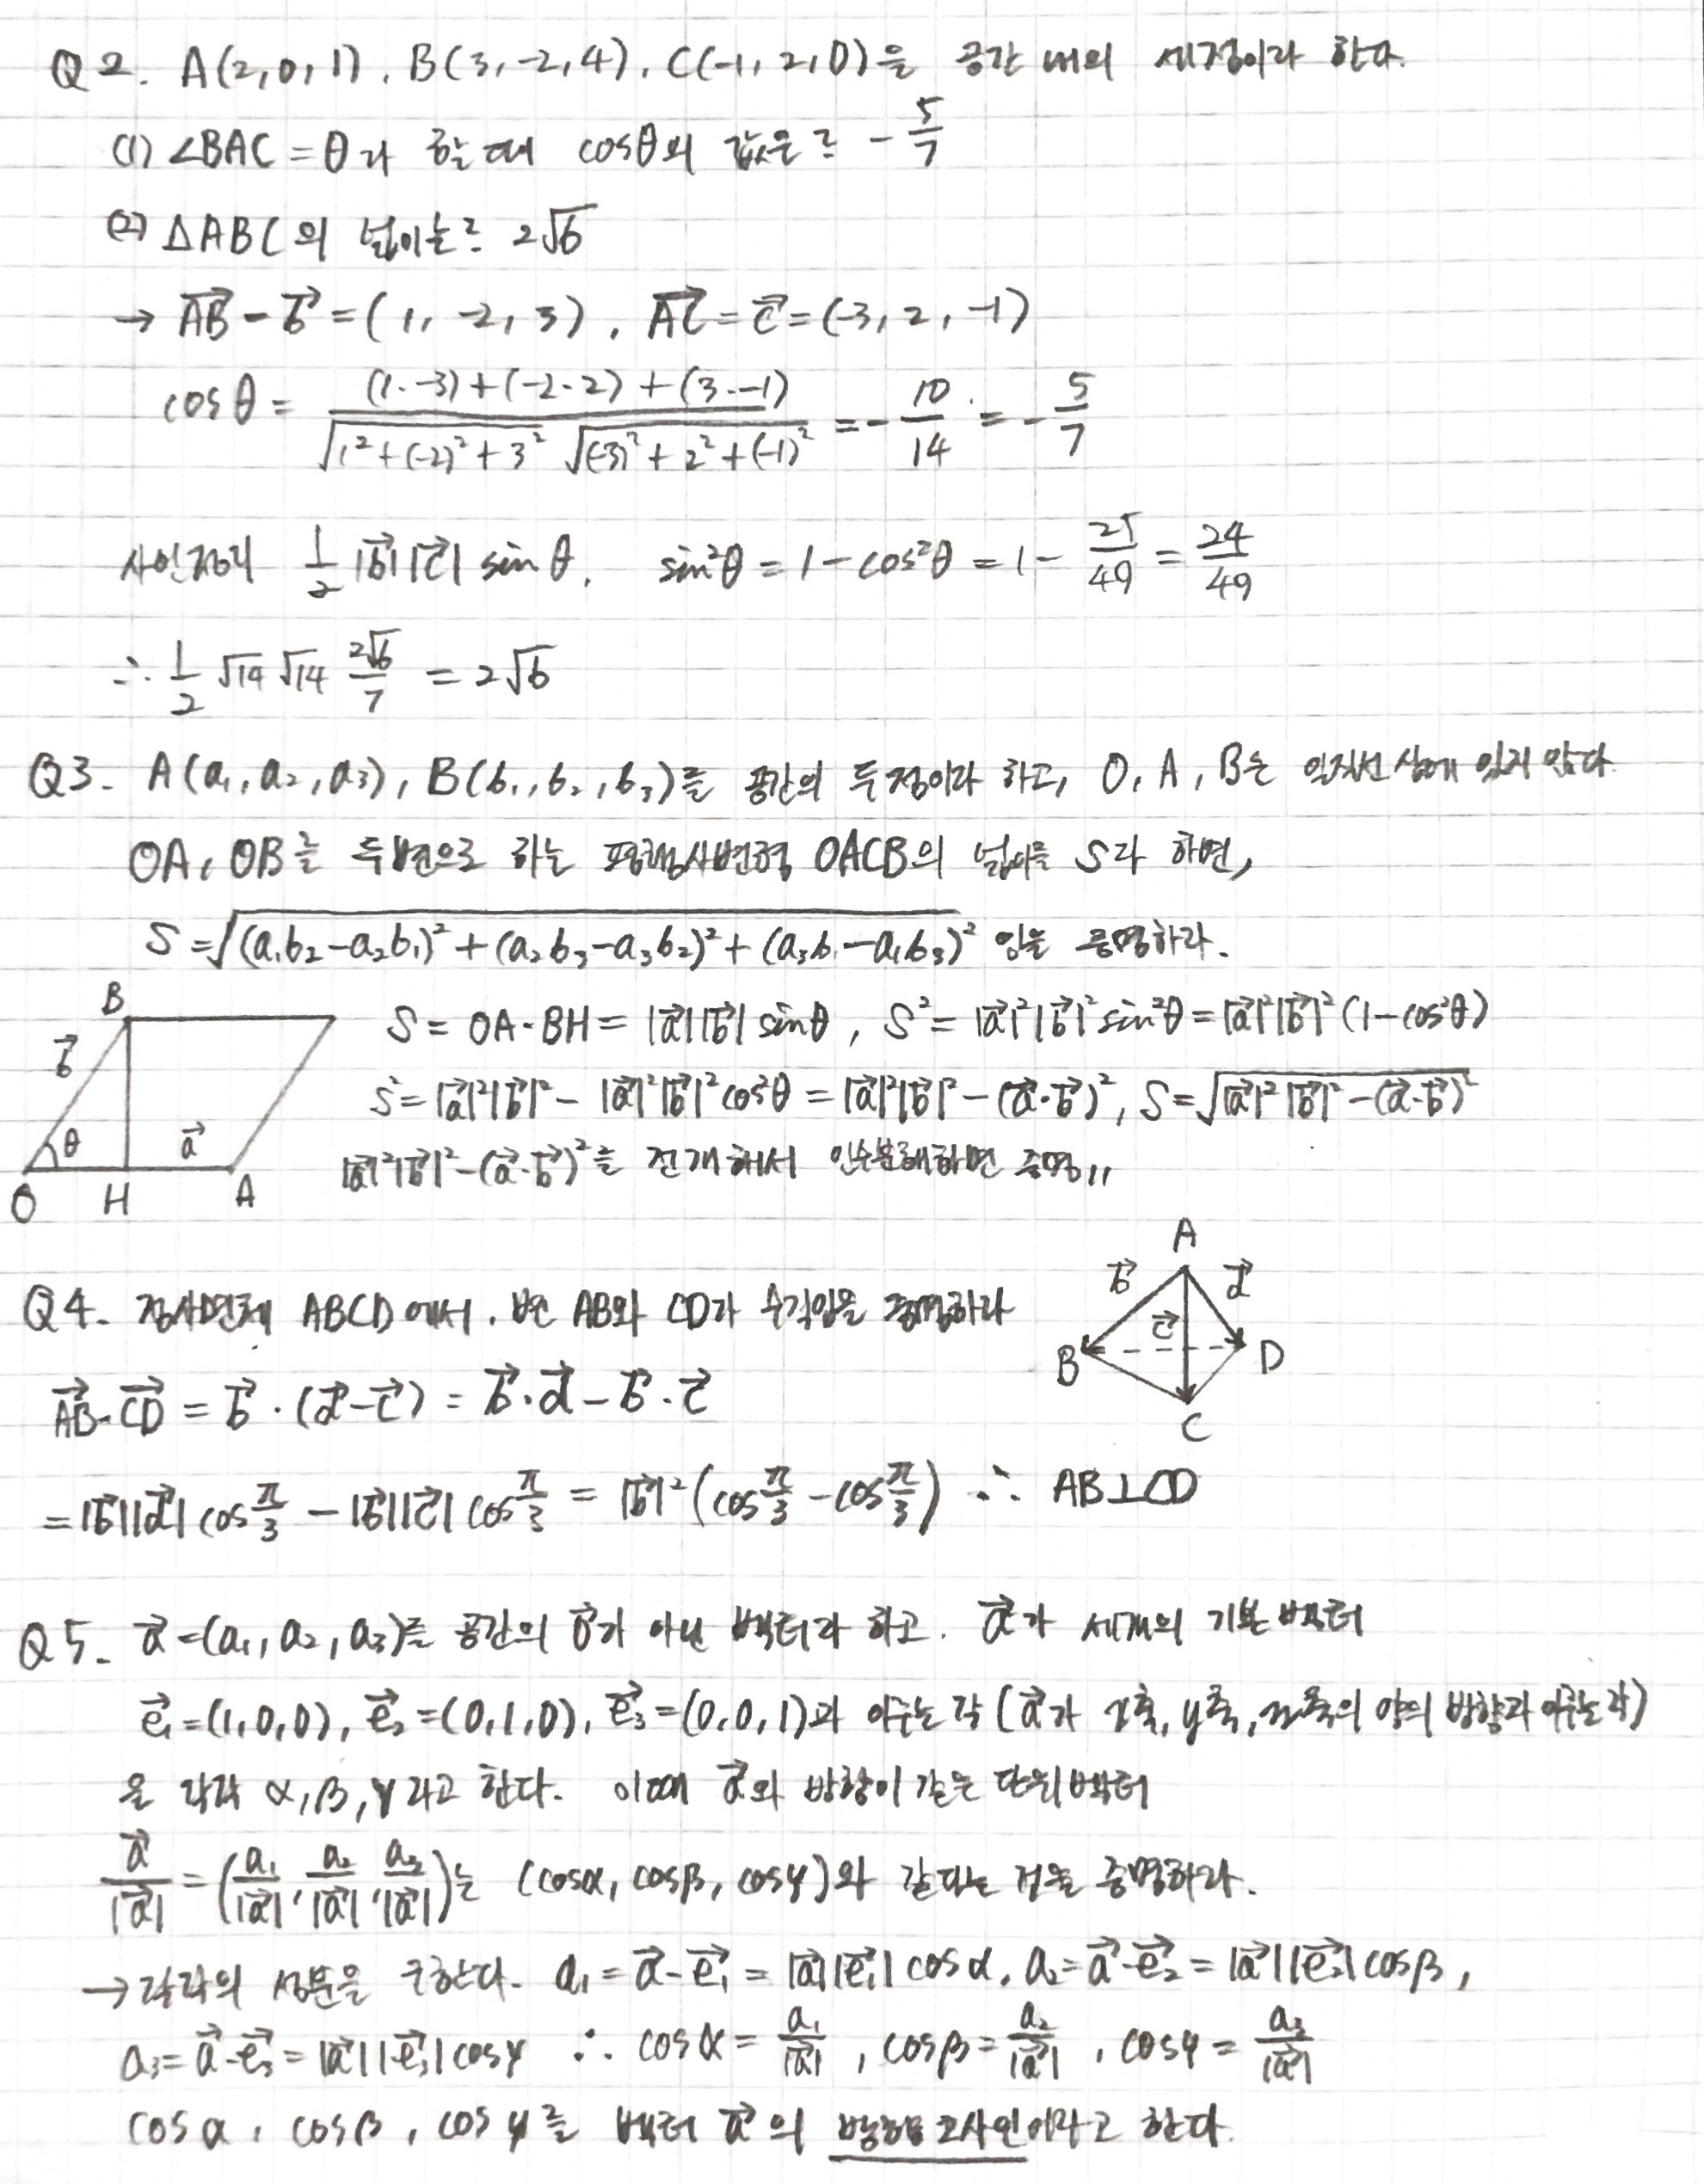 Q2. A(2,0,1), B(3,-2,4), C(-1,2,0)을 공간 내의 세점이라 한다.
(1) ∠BAC = θ라 할 때 cosθ의 값은? -5/7
(2) △ABC의 넓이는? 2√6
→ AB⃗ = b⃗ = (1, -2, 3), AC⃗ = c⃗ = (-3, 2, -1)
cosθ = ((1·-3)+(-2·2)+(3·-1)) / (√(1²+(-2)²+3²) √((-3)²+2²+(-1)²)) = -10/14 = -5/7
사인정리 1/2 |b⃗||c⃗| sinθ, sin²θ = 1-cos²θ = 1 - 25/49 = 24/49
∴ 1/2 √14 √14 2√6/7 = 2√6
Q3. A(a₁, a₂, a₃), B(b₁, b₂, b₃)를 공간의 두점이라 하고, O, A, B는 일직선 상에 있지 않다.
OA, OB를 두변으로 하는 평행사변형 OACB의 넓이를 S라 하면,
S = √((a₁b₂-a₂b₁)² + (a₂b₃-a₃b₂)² + (a₃b₁-a₁b₃)²) 임을 증명하라.
B
b⃗
θ a⃗
O H A
S = OA·BH = |a⃗||b⃗| sinθ, S² = |a⃗|²|b⃗|² sin²θ = |a⃗|²|b⃗|² (1-cos²θ)
S² = |a⃗|²|b⃗|² - |a⃗|²|b⃗|² cos²θ = |a⃗|²|b⃗|² - (a⃗·b⃗)², S = √(|a⃗|²|b⃗|² - (a⃗·b⃗)²)
|a⃗|²|b⃗|² - (a⃗·b⃗)²를 전개해서 인수분해하면 증명//
Q4. 정사면체 ABCD에서, 변 AB와 CD가 수직임을 증명하라
A
b⃗ d⃗
c⃗
B D
C
AB⃗·CD⃗ = b⃗·(d⃗-c⃗) = b⃗·d⃗ - b⃗·c⃗
= |b⃗||d⃗| cos π/3 - |b⃗||c⃗| cos π/3 = |b⃗|² (cos π/3 - cos π/3) ∴ AB⊥CD
Q5. a⃗ = (a₁, a₂, a₃)를 공간의 0⃗가 아닌 벡터라 하고. a⃗가 세개의 기본 벡터
e₁⃗ = (1,0,0), e₂⃗ = (0,1,0), e₃⃗ = (0,0,1)과 이루는 각 (a⃗가 x축, y축, z축의 양의 방향과 이루는 각)
을 각각 α, β, γ라고 한다. 이때 a⃗와 방향이 같은 단위벡터
a⃗/|a⃗| = (a₁/|a⃗|, a₂/|a⃗|, a₃/|a⃗|)는 (cosα, cosβ, cosγ)와 같다는 것을 증명하라.
→ 각각의 성분을 구한다. a₁ = a⃗·e₁⃗ = |a⃗||e₁⃗| cosα, a₂ = a⃗·e₂⃗ = |a⃗||e₂⃗| cosβ,
a₃ = a⃗·e₃⃗ = |a⃗||e₃⃗| cosγ ∴ cosα = a₁/|a⃗|, cosβ = a₂/|a⃗|, cosγ = a₃/|a⃗|
cosα, cosβ, cosγ를 벡터 a⃗의 방향코사인이라고 한다.